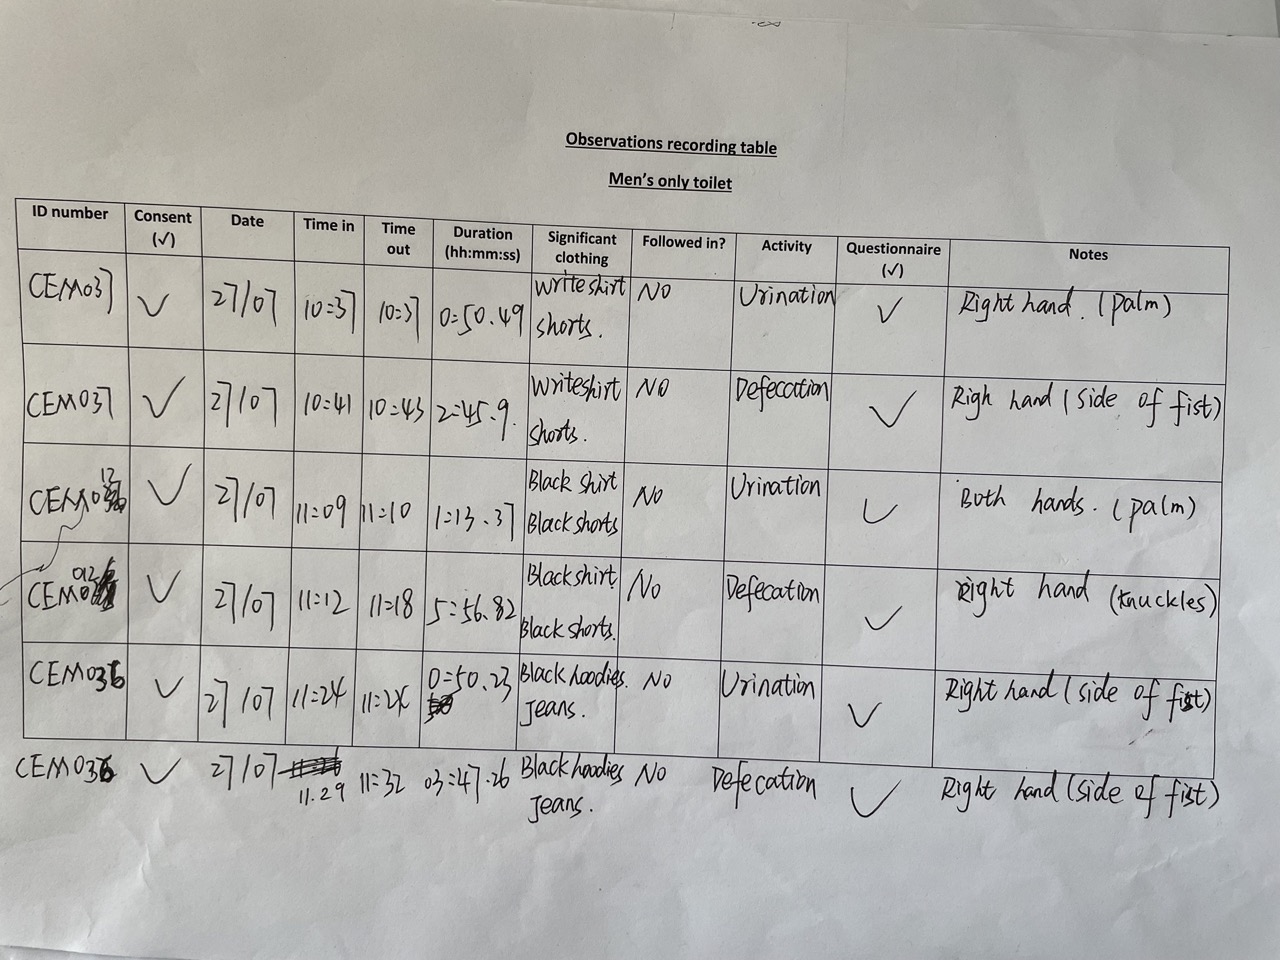 Observations recording table
Men's only toilet
ID number Consent (√) Date Time in Time out Duration (hh:mm:ss) Significant clothing Followed in? Activity Questionnaire (√) Notes
CEM037 √ 27/07 10:37 10:37 0:50.49 Write shirt shorts. NO Urination √ Right hand. (palm)
CEM037 √ 27/07 10:41 10:43 2:45.9. Writeshirt shorts. NO Defecation √ Righ hand (side of fist)
CEM012 √ 27/07 11:09 11:10 1:13.37 Black shirt Black shorts No Urination √ Both hands. (palm)
CEM012 √ 27/07 11:12 11:18 5:56.82 Black shirt Black shorts. No Defecation √ Right hand (knuckles)
CEM036 √ 27/07 11:24 11:24 0:50.23 Black hoodies. Jeans. No Urination √ Right hand (side of fist)
CEM036 √ 27/07 11.29 11:32 03:47.26 Black hoodies Jeans. No Defecation √ Right hand (side of fist)